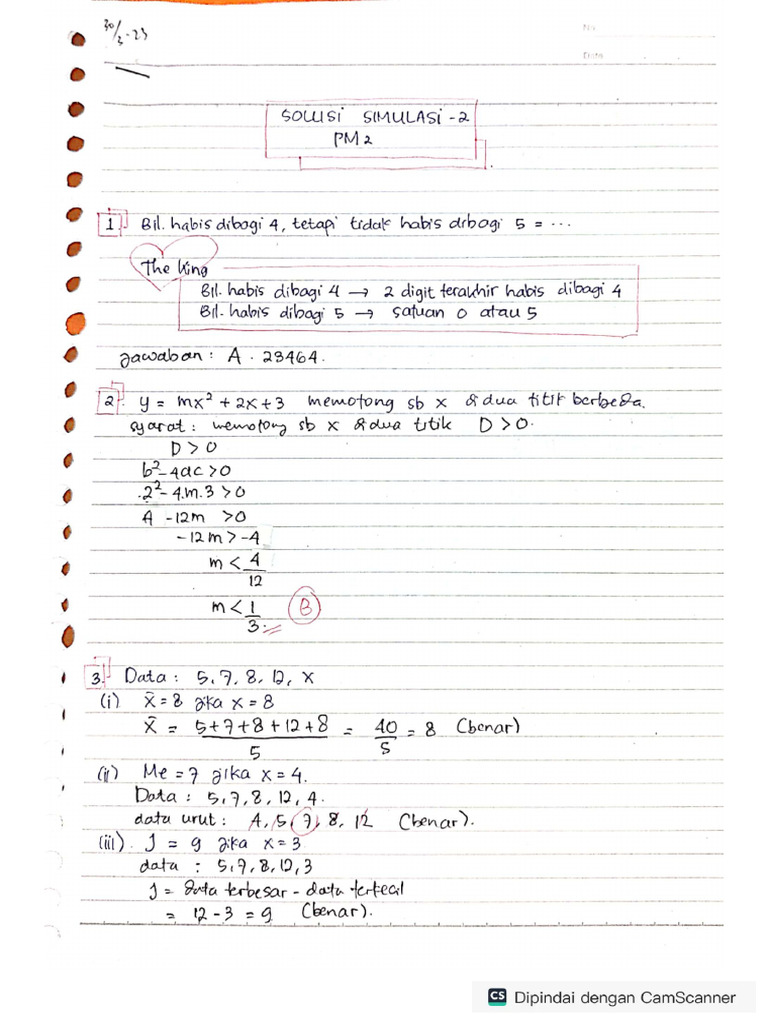 30/3-23
No
Date
SOLUSI SIMULASI - 2
PM 2
1. Bil. habis dibagi 4, tetapi tidak habis dibagi 5 = ...
The King
Bil. habis dibagi 4 → 2 digit terakhir habis dibagi 4
Bil. habis dibagi 5 → satuan 0 atau 5
Jawaban : A. 23464.
2. y = mx² + 2x + 3 memotong sb x di dua titik berbeda.
syarat : memotong sb x di dua titik D > 0.
D > 0
b² - 4ac > 0
2² - 4.m.3 > 0
4 - 12m > 0
-12m > -4
m < 4/12
m < 1/3 B
3. Data : 5, 7, 8, 12, x
(i) x̄ = 8 jika x = 8
x̄ = 5+7+8+12+8/5 = 40/5 = 8 (benar)
(ii) Me = 7 jika x = 4.
Data : 5, 7, 8, 12, 4.
data urut : 4, 5, 7, 8, 12 (benar).
(iii). J = 9 jika x = 3
data : 5, 7, 8, 12, 3
J = data terbesar - data terkecil
= 12 - 3 = 9 (benar).
CS Dipindai dengan CamScanner